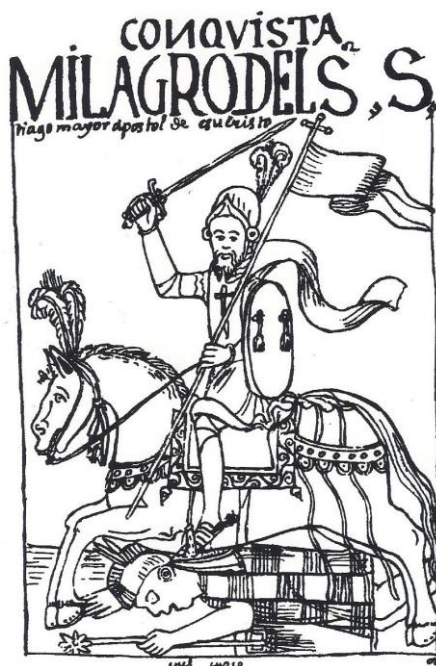 CONQVISTA
MILAGRO DEL S, S,
tiago mayor apostol de